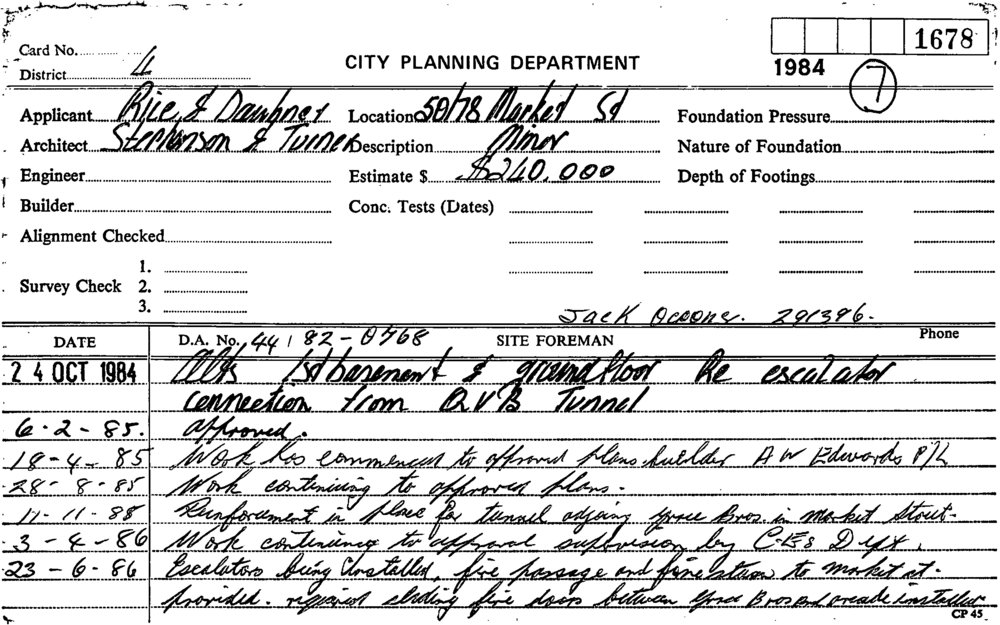 1678
Card No.
District 4
CITY PLANNING DEPARTMENT
1984
7
Applicant Rice & Daubney Location 50/78 Market St Foundation Pressure
Architect Stephenson & Turner Description Minor Nature of Foundation
Engineer Estimate $ $240,000 Depth of Footings
Builder Conc. Tests (Dates)
Alignment Checked
1.
Survey Check 2.
3.
Jack 291396.
DATE D.A. No. 44 82-0768 SITE FOREMAN Phone
24 OCT 1984 Alts 1st basement & ground floor Re escalator
connection from QVB Tunnel
6-2-85. Approved.
18-4-85 Work has commenced to approved plans builder A W Edwards P/L
28-8-85 Work continuing to approved plans.
11-11-85 Reinforcement in place for tunnel adjoing Grace Bros. in Market Street.
3-4-86 Work continuing to approval supervision by Dept.
23-6-86 Escalators being installed, fire passage and fire stairs to market st.
provided. required sliding fire doors between Grace Bros and arcade installed
CP 45